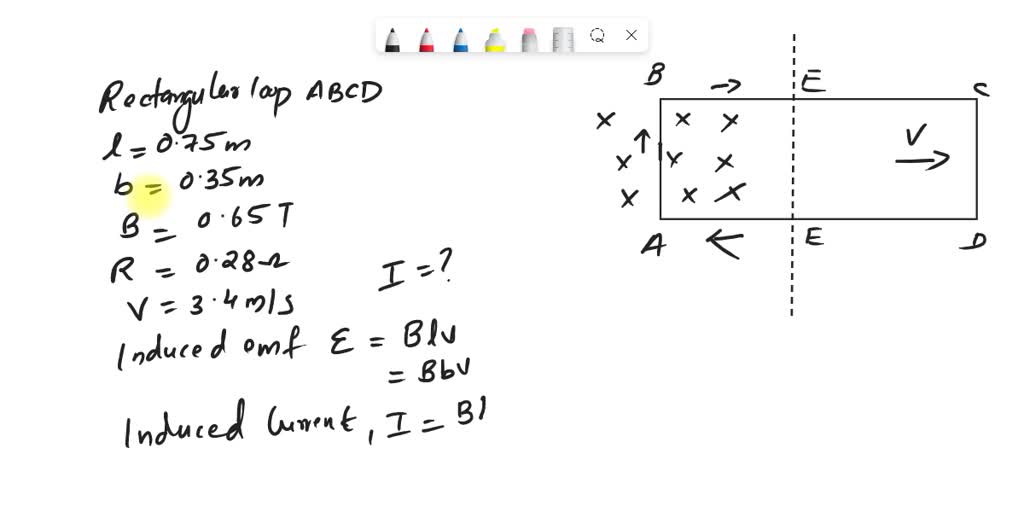 Rectangular loop ABCD
l = 0.75m
b = 0.35m
B = 0.65 T
R = 0.28 Ω
V = 3.4 m/s
I = ?
Induced emf ε = Blv
= Bbv
Induced Current, I = Bl
B → E C
x x x
↑ V →
x x x
x x x
A ← E D